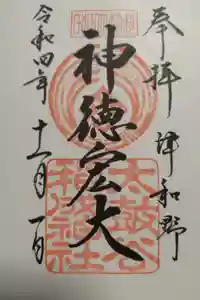 奉拝 津和野
神徳宏大
太皷谷
稲成神社
令和四年 十一月一日